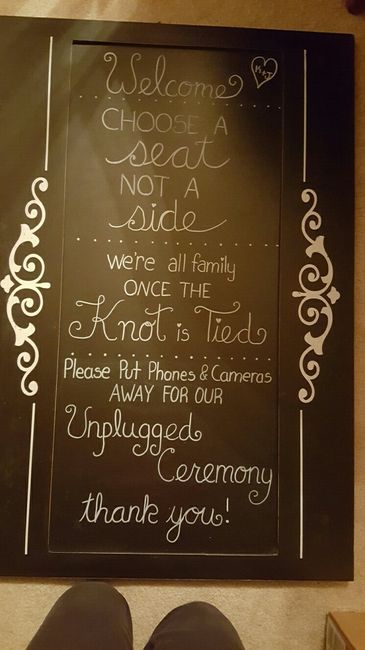 Welcome
K+J
CHOOSE A
seat
NOT A
side
we're all family
ONCE THE
Knot is Tied
Please Put Phones & Cameras
AWAY FOR OUR
Unplugged
Ceremony
thank you!